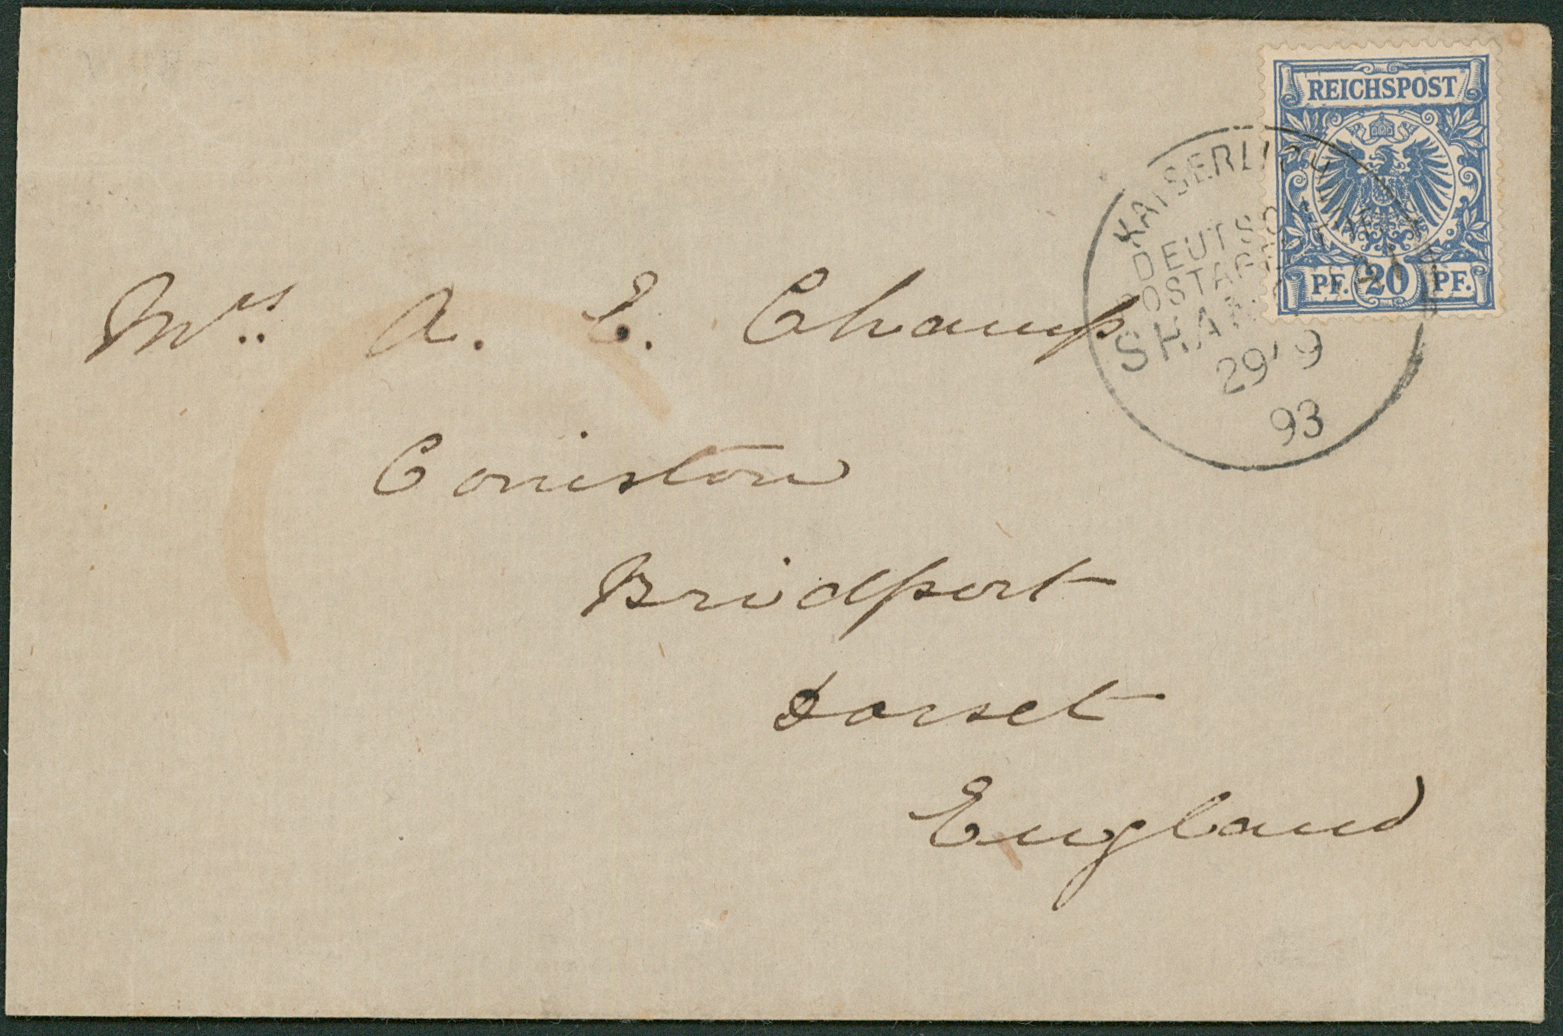 REICHSPOST
PF. 20 PF.
KAISERLICH
DEUTSC
POSTAGENT
SHANG
29/9
93
Mrs. A. E. Champ
Coniston
Bridport
Dorset
England